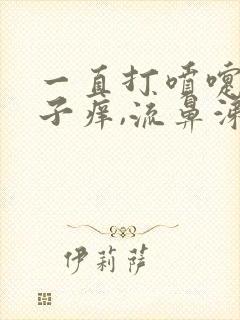 一直打喷嚏
子痒,流鼻涕
伊莉萨